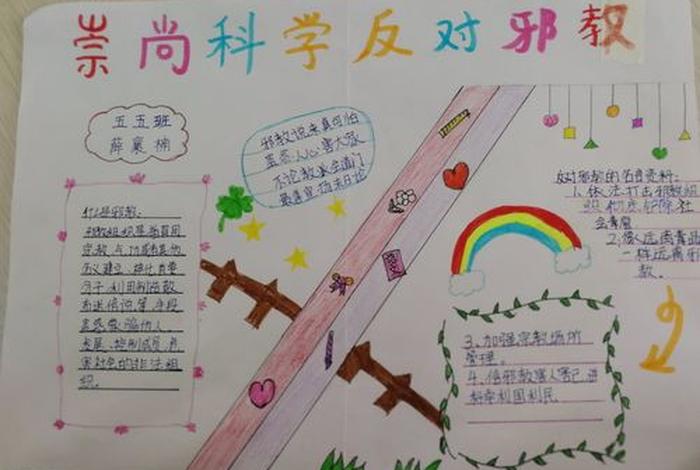 崇尚科学反对邪教
五五班
薛襄楠
邪教说来真可怕
蛊惑人心害大家
不论教派生道门
什么是邪教:
邪教组织是指冒用
宗教、气功或者其他
名义建立、神化首要
分子利用制造散
布迷信邪说等手段
蛊惑蒙骗他人,
发展、控制成员,危
害社会的非法组
织。
反对邪教的名言资料:
1.依法打击邪教组
织彻底铲除社
会毒瘤
2.像远离毒品
一样远离邪
教。
3.加强宗教场所
管理。
4.信邪教害人害己,讲
科学利国利民